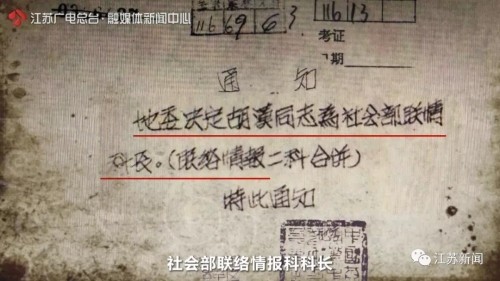 江苏广电总台·融媒体新闻中心
116 69 6 3
116 13
考证
期
通知
地委决定胡漢同志為社会部联情
科長。(联络情報二科合併)
特此通知
社会部联络情报科科长
江苏新闻